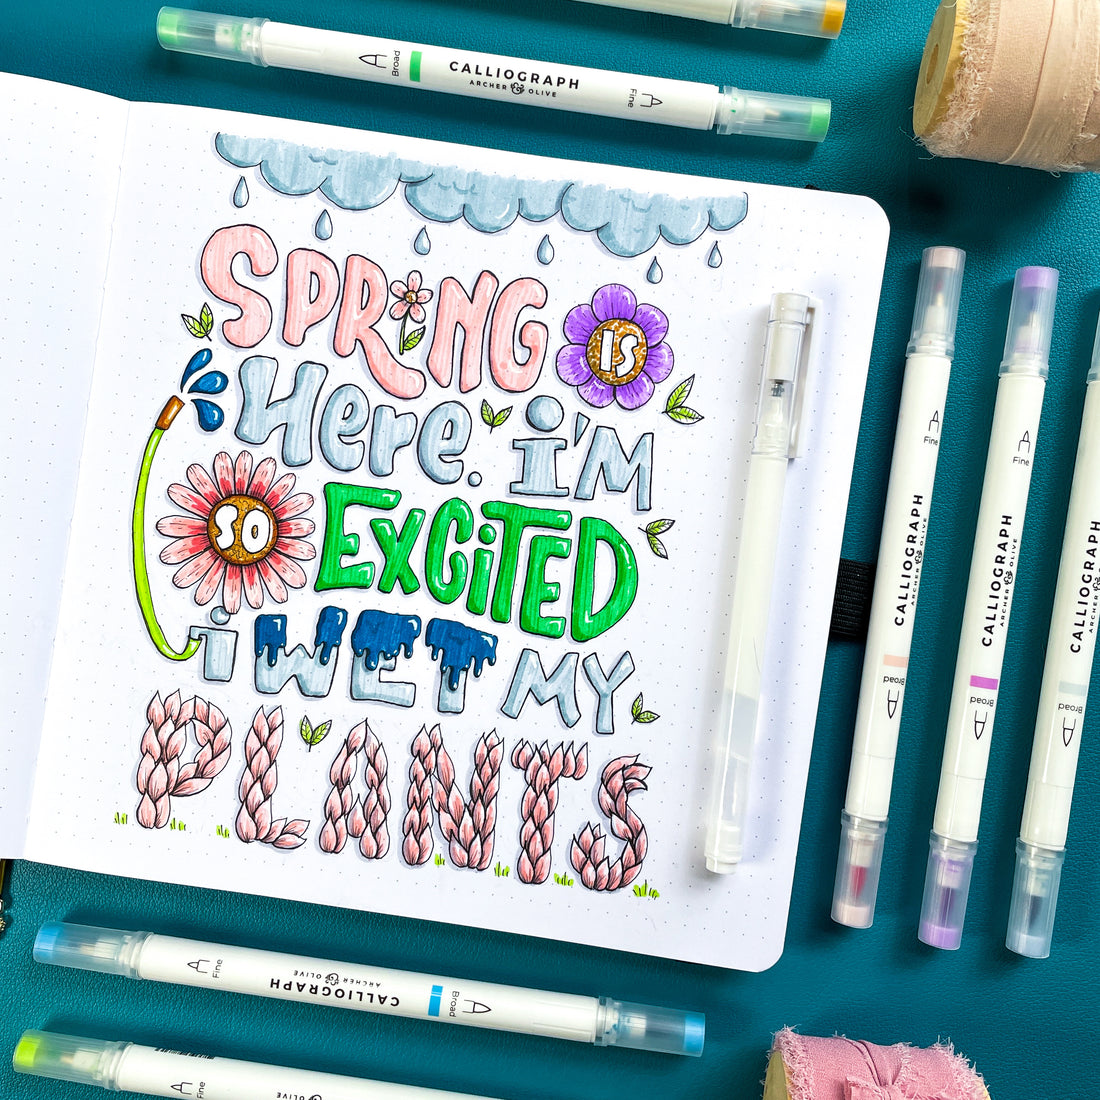 Broad
CALLIOGRAPH
ARCHER & OLIVE
Fine
SPRiNG IS
Here. i'M
SO EXCiTED
i WET MY
PLANTS
Fine
CALLIOGRAPH
ARCHER & OLIVE
Broad
Fine
CALLIOGRAPH
ARCHER & OLIVE
Broad
CALLIOGRAPH
ARCHER & OLIVE
Broad
Fine
CALLIOGRAPH
ARCHER & OLIVE
Broad
Fine
OLIVE